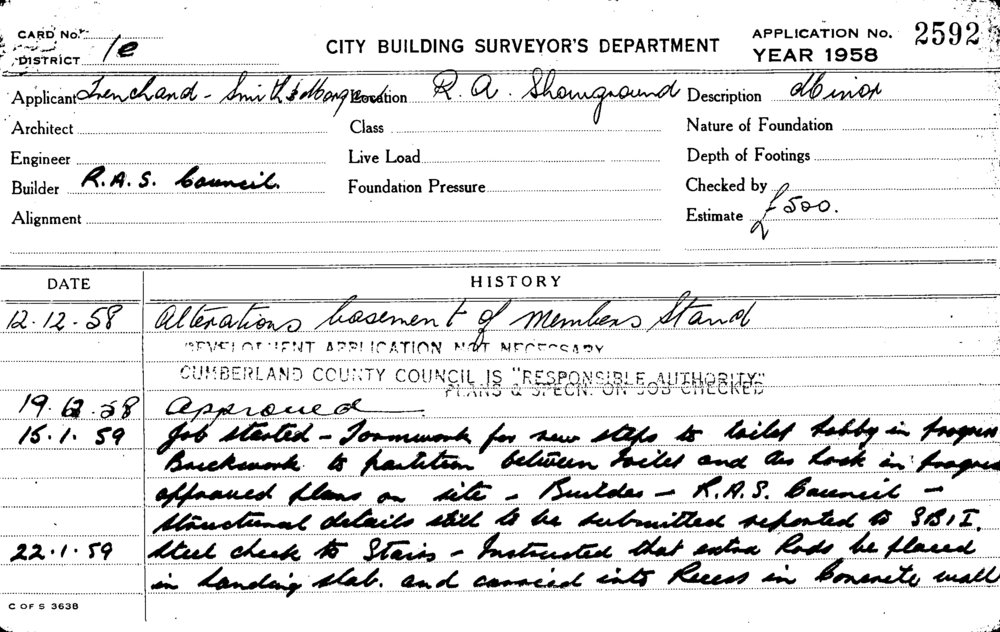 CARD No.
DISTRICT 1e
CITY BUILDING SURVEYOR'S DEPARTMENT
APPLICATION No. 2592
YEAR 1958
Applicant Trenchand - Smith &
Location R. A. Showground
Description Minor
Architect
Class
Nature of Foundation
Engineer
Live Load
Depth of Footings
Builder R.A.S. Council.
Foundation Pressure
Checked by
Alignment
Estimate £500.
DATE
HISTORY
12.12.58 Alterations basement of members Stand
DEVELOPMENT APPLICATION NOT NECESSARY
CUMBERLAND COUNTY COUNCIL IS "RESPONSIBLE AUTHORITY"
PLANS & SPECN. ON JOB CHECKED
19.12.58 Approved
15.1.59 Job started - Formwork for new steps to toilet lobby in progress
Brickwork to partition between toilet and in progress
approved plans on site - Builder - R.A.S. Council -
structural details still to be submitted reported to S.B.I.
22.1.59 Steel check to Stairs - Instructed that extra Rods be placed
in landing slab. and carried into Recess in Concrete wall
C OF S 3638